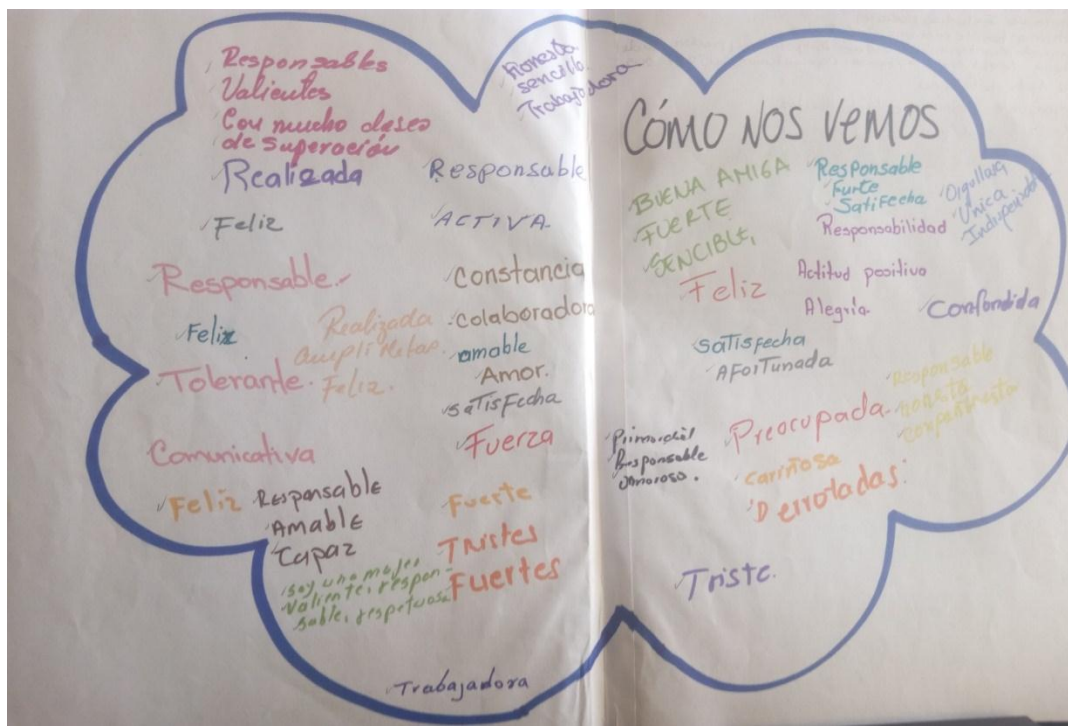 Responsables
Valientes
Con mucho deseo
de superación
Realizada
Feliz
Responsable
Feliz
Realizada
Metas
Feliz.
Tolerante.
Comunicativa
Feliz
Responsable
Amable
Capaz
soy una mujer
valiente, respon-
sable, respetuosa
Honesta
sencilla
Trabajadora
Responsable
ACTIVA
Constancia
colaboradora
amable
Amor.
satisfecha
Fuerza
Fuerte
Tristes
Fuertes
Trabajadora
CÓMO NOS VEMOS
BUENA AMIGA
FUERTE
SENCIBLE,
Responsable
Furte
Satifecha
Orgullosa
Unica
Responsabilidad
Feliz
Actitud positivo
Alegría
Confondida
satisfecha
AForTunada
Responsable
Preocupada
Primordial
Responsable
Amoroso.
cariñosa
Derrotadas:
Triste.